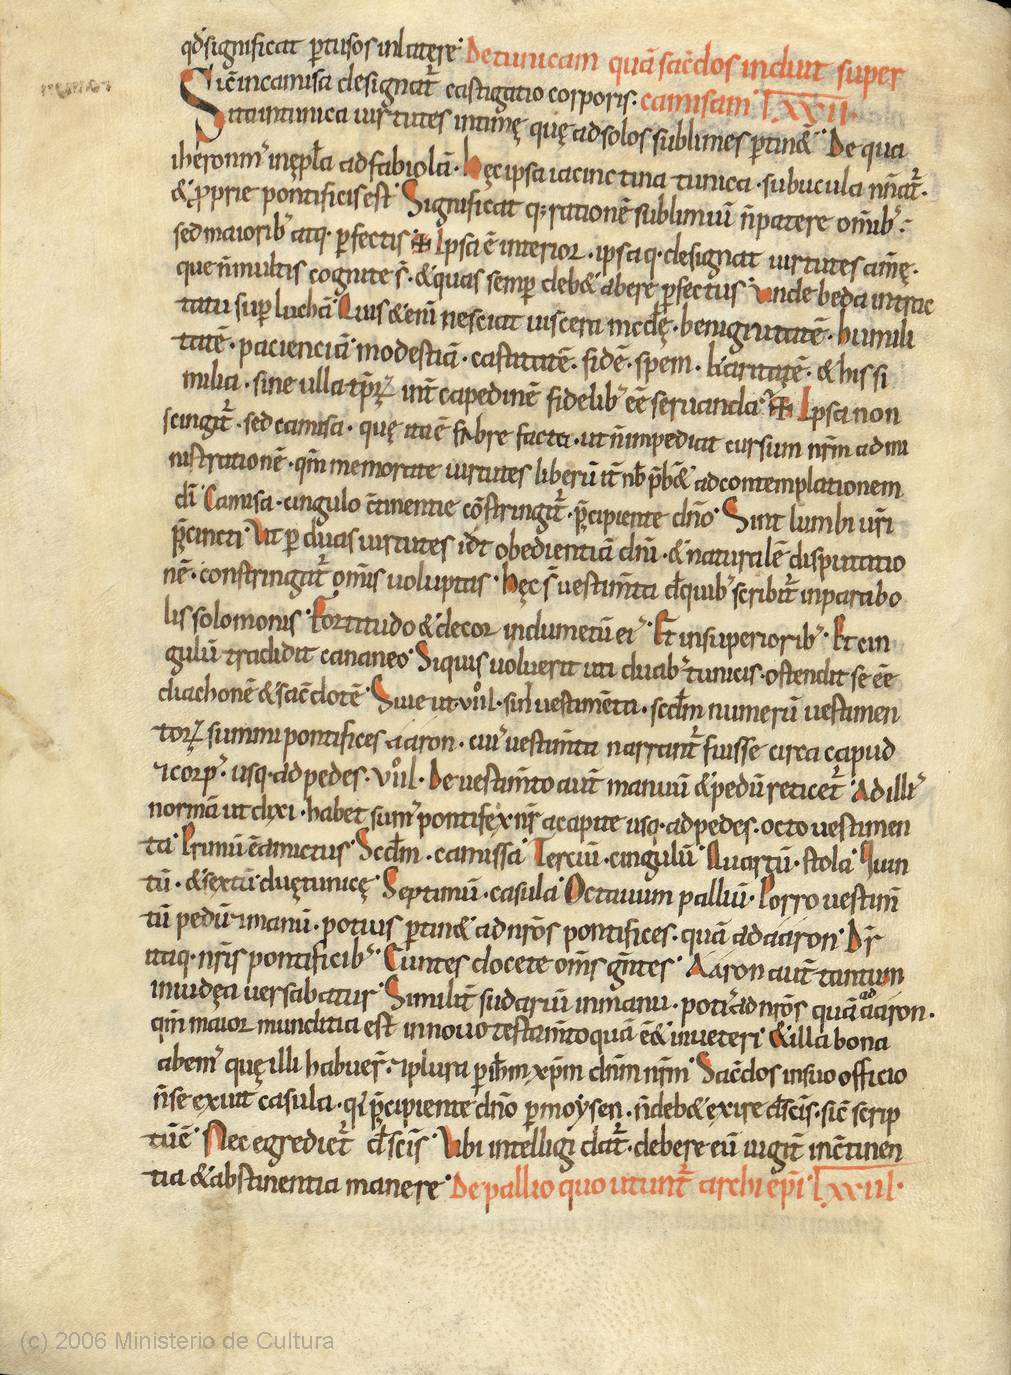 qd̄ significat ꝑtusos in latere. De tunicam quā sac̄dos induit super
Sic̄ in camisa designat̄ castigatio corporis. camisam LXXII.
Sita in tunica uirtutes intimę quę ad solos sublimes ꝑtin&. De qua
iheronim᾽ in ep̄la ad fabiolā. hęc ipsa iacinctina tunica. subucula nn̄at̄.
& ꝓprie pontificis est. Significat q; rationē sublimiū n̄ patere om̄ib᾽.
sed maiorib᾽ atq. ꝑfectis Ipsa ē interior. ipsa q. designat uirtutes am̄ę.
que n̄ multis cognite s̄. & quas semꝑ deb& abere ꝑfectus. unde beda in trac
tatu suꝑ luchā. Quis & eni nesciat uiscera mcd̄ę. benignitatē. humili
tatē. pacienciā modestiā. castitatē. fidē. spem. karitatē. & his si
milia. sine ulla tp̄rꝝ int̄capedinē fidelib᾽ eē seruanda. Ipsa non
scingit̄. sed camisa. quę itaē fabre facta. ut n̄ impediat cursum nr̄m ad mi
nistrationē. qm̄ memorate uirtutes liberū it̄ nb̄ p̄b& ad contemplationem
di. Camisa. cingulo c̄tinentie cōstringit̄. p̄cipiente dn̄o. Sint lumbi ur̄i
p̄cincti. Ut ꝑ duas uirtutes idt obedientiā dn̄i. & naturalē disputatio
nē. constringat̄ om̄is uoluptas. hęc s̄ uestim̄ta de quib᾽ scribit̄ in parabo
lis solomonis. Fortitudo & decor indumetū ei᾽. Et in superiorib᾽. Et cin
gulū tradidit cananeo. Si quis uoluerit uti duab᾽ tunicis. ostendit se eē
diachonē & sac̄dotē. Siue ut. sint uestimēta. scd̄m numerū uestimen
torꝝ summi pontifices aaron. cui᾽ uestim̄ta narrant̄ fuisse circa capud
⁊ corp᾽. usq. ad pedes. De uestim̄to aut̄ manuū & pedū reticet̄. Ad illi᾽
normā ut dixi. habet sum᾽ pontifex nr̄ a capite usq. ad pedes. octo uestimen
ta. Primū ē amictus. Scd̄m. camissa. Terciū. cingulū. Quartū. stola. Quin
tū. & sextū duę tunicę. Septimū. casula. Octauum palliū. Porro uestim̄
tū pedū ⁊ manū. potius ꝑtin& ad nr̄os pontifices. quā ad aaron. Dr̄
itaq. nr̄is pontificib᾽. Euntes docete om̄s gn̄tes. Aaron aut̄ tantum
in iudęa uersabatur. Similit̄ sudariū in manu. poti᾽ ad nr̄os quā ad aaron.
qm̄ maior munditia est in nouo testam̄to quā ē & in ueteri. & illa bona
abem᾽ quę illi habuer̄. ⁊ plura ꝑ ih̄m xp̄m dn̄m nr̄m. Sac̄dos in suo officio
n̄ se exuit casula. q̄ p̄cipiente dn̄o ꝑ moysen. n̄ deb& exire d̄ sc̄is. sic̄ scrip
tūē. Nec egrediet̄ d̄ sc̄is. Ubi intelligi dat̄. debere eū iugit̄ in c̄tinen
tia & abstinentia manere. De pallio quo utunt̄ archi ep̄i. LXXIII.
(c) 2006 Ministerio de Cultura